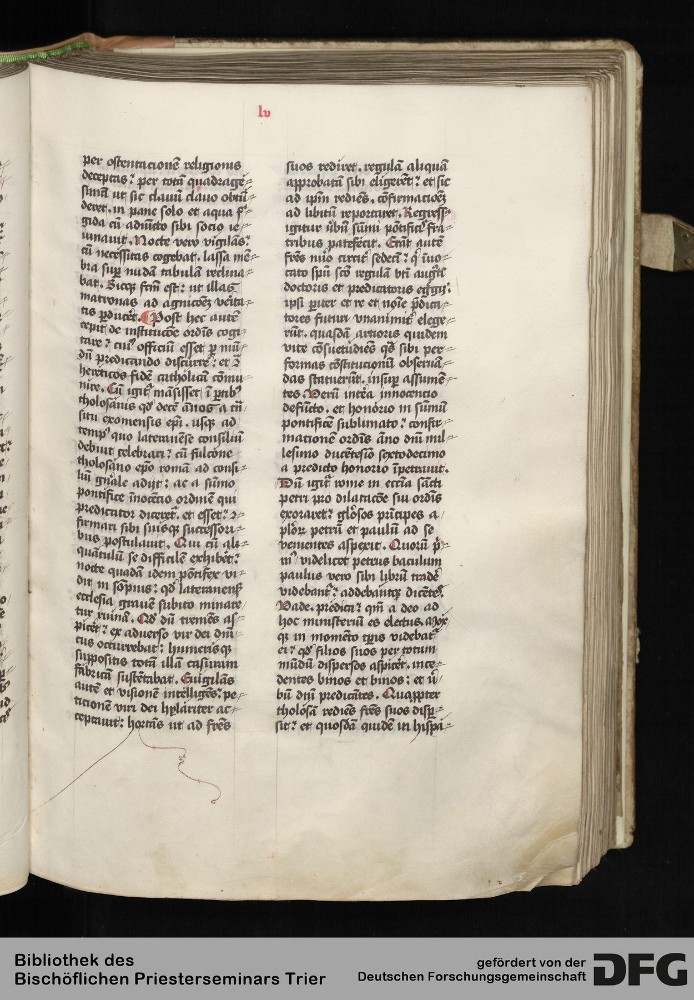 lv
per ostentacionē religionis
deceptas: per totā quadrage-
simā ut sic clauū clauo obtū-
deret. in pane solo et aqua fⁱ-
gida cū adiūcto sibi socio ie-
iunauit. Nocte vero vigilās:
cū necessitas cogebat. lassa mē-
bra suꝑ nudā tabulā reclina-
bat. Sicqꝫ fcm̄ est: ut illas
matronas ad agnicōeꝫ verita-
tis ꝑduceret. Post hec autē
cepit de institucōe ordīs cogi-
tare: cuiꝰ officiū esset ꝑ mū-
dū predicando discurrere: et
hereticos fidē catholicā
nire. Cū igiꞇ māsisset ī ꝑtibꝰ
tholosanis qd̓ decē ānos a
situ exomensis epi. usqꝫ ad
tempꝰ quo lateranēse consiliū
debuit celebrari: cū fulcone
tholosano epo romā ad consi-
liū gn̄ale adijt: ac a sūmo
pontifice īnocētio ordinē qui
predicator diceretꝛ. et esset:
firmari sibi suisqꝫ successori-
bus postulauit. Qui cū ali-
quātulū se difficilē exhibēt:
nocte quadā idem pōtifex vi-
dit in sōpnis: qd̓ lateranensꝫ
ecclesia grauē subito minare-
tur ruinā. Qd̓ dū tremēs as-
picēt: ex aduerso vir dei dn̄i-
cus occurrebat: humerisqꝫ
suppositis totā illā casuram
fabricā sustētabat. Euigilās
autē et visionē intelligēs: pe-
ticionē viri dei hylariter ac-
ceptauit: hortās ut ad frēs
suos rediret. regulā aliquā
approbatā sibi eligeret: et sic
ad ipm̄ rediēs. cōfirmacōeꝫ
ad libitū reportaret. Regressꝰ
igitur ūbū sūmi pōtificⁱ frā-
tribus patefecit. Erāt autē
frēs nūo circit̓ sedecī: q̓ īuo-
cato spū scō regulā bt̄i augꝰt̄
doctoris et predicatoris egrꝫgij:
ipsi ꝑiter et re et noīe p̄dica-
tores futuri vnanimiꞇ elege-
rūt. quasdā artioris quidem
vite cōsuetudīes qd̓ sibi per-
formas cōstitucionū obseruā-
das statuerūt. insuꝑ assumē-
tes. Verū int̓ea innocentio
defūcto. et honorio in sūmū
pontificē sublimato: confir-
macionē ordīs āno dn̄i mil-
lesimo ducētesīo sextodecimo
a predicto honorio īpetrauit.
Dū igit̓ rome in ecclia sācti
petri pro dilatacōe sui ordīs
exoraret: gl̓osos prīcipes a-
plōꝛ petrū et paulū ad se
venientes aspexit. Quorū p̄-
mꝰ videlicet petrus baculum
paulus vero sibi librū tradē
videbant̓: addebātqꝫ dicētes.
Vade. predica: qm̄ a deo ad
hoc ministeriū es electus. Mox
qꝫ in momēto tꝑis videbaꞇ
ei: qd̓ filios suos per totum
mūdū dispersos aspicēt. ince-
dentes binos et binos: et ū-
bū dn̄i predicātes. Quaꝓpter
tholosā rediēs frēs suos disꝑ-
sit: et quosdā quidē in hispa-
Bibliothek des
Bischöflichen Priesterseminars Trier
gefördert von der
Deutschen Forschungsgemeinschaft
DFG